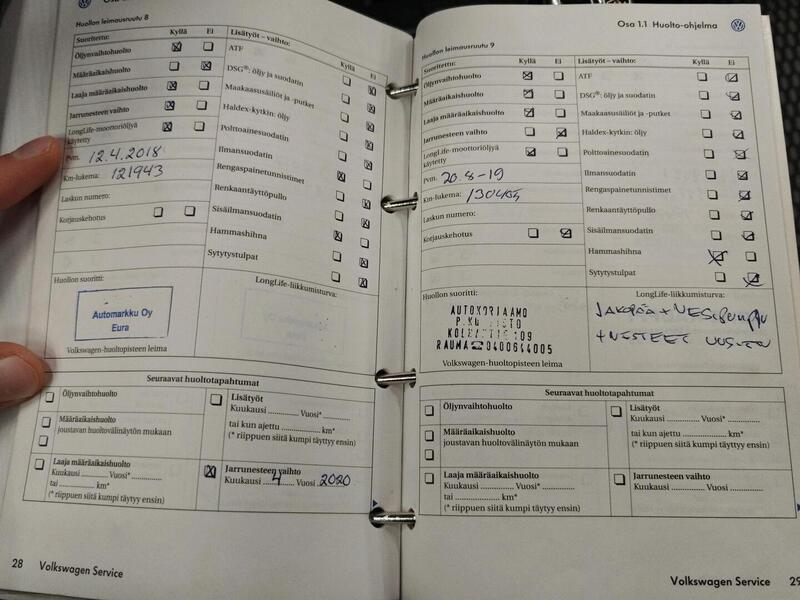 Huollon leimausruutu 8
Suoritettu: Kyllä Ei
Öljynvaihtohuolto
Määräaikaishuolto
Laaja määräaikaishuolto
Jarrunesteen vaihto
LongLife-moottoriöljyä
käytetty
Pvm. 12.4.2018
Km-lukema: 121943
Laskun numero:
Korjauskehotus
Lisätyöt – vaihto: Kyllä Ei
ATF
DSG®: öljy ja suodatin
Maakaasusäiliöt ja -putket
Haldex-kytkin: öljy
Polttoainesuodatin
Ilmansuodatin
Rengaspainetunnistimet
Renkaantäyttöpullo
Sisäilmansuodatin
Hammashihna
Sytytystulpat
Huollon suoritti:
Automarkku Oy
Eura
Volkswagen-huoltopisteen leima
LongLife-liikkumisturva:
Seuraavat huoltotapahtumat
Öljynvaihtohuolto
Määräaikaishuolto
joustavan huoltovälinäytön mukaan
Laaja määräaikaishuolto
Kuukausi ............ Vuosi* ............
tai ............ km*
(* riippuen siitä kumpi täyttyy ensin)
Lisätyöt
Kuukausi ............ Vuosi* ............
tai kun ajettu ............ km*
(* riippuen siitä kumpi täyttyy ensin)
Jarrunesteen vaihto
Kuukausi 4 Vuosi 2020
28 Volkswagen Service
Osa 1.1 Huolto-ohjelma
Huollon leimausruutu 9
Suoritettu: Kyllä Ei
Öljynvaihtohuolto
Määräaikaishuolto
Laaja määräaikaishuolto
Jarrunesteen vaihto
LongLife-moottoriöljyä
käytetty
Pvm. 20.8-19
Km-lukema:
Laskun numero:
Korjauskehotus
Lisätyöt – vaihto: Kyllä Ei
ATF
DSG®: öljy ja suodatin
Maakaasusäiliöt ja -putket
Haldex-kytkin: öljy
Polttoainesuodatin
Ilmansuodatin
Rengaspainetunnistimet
Renkaantäyttöpullo
Sisäilmansuodatin
Hammashihna
Sytytystulpat
Huollon suoritti:
AUTOKORJAAMO
RAUMA ☎0400644005
Volkswagen-huoltopisteen leima
LongLife-liikkumisturva:
JAKOPÄÄ + VESIPUMPPU
+ NESTEET UUSITTU
Seuraavat huoltotapahtumat
Öljynvaihtohuolto
Määräaikaishuolto
joustavan huoltovälinäytön mukaan
Laaja määräaikaishuolto
Kuukausi ............ Vuosi* ............
tai ............ km*
(* riippuen siitä kumpi täyttyy ensin)
Lisätyöt
Kuukausi ............ Vuosi* ............
tai kun ajettu ............ km*
(* riippuen siitä kumpi täyttyy ensin)
Jarrunesteen vaihto
Kuukausi ............ Vuosi ............
Volkswagen Service 29